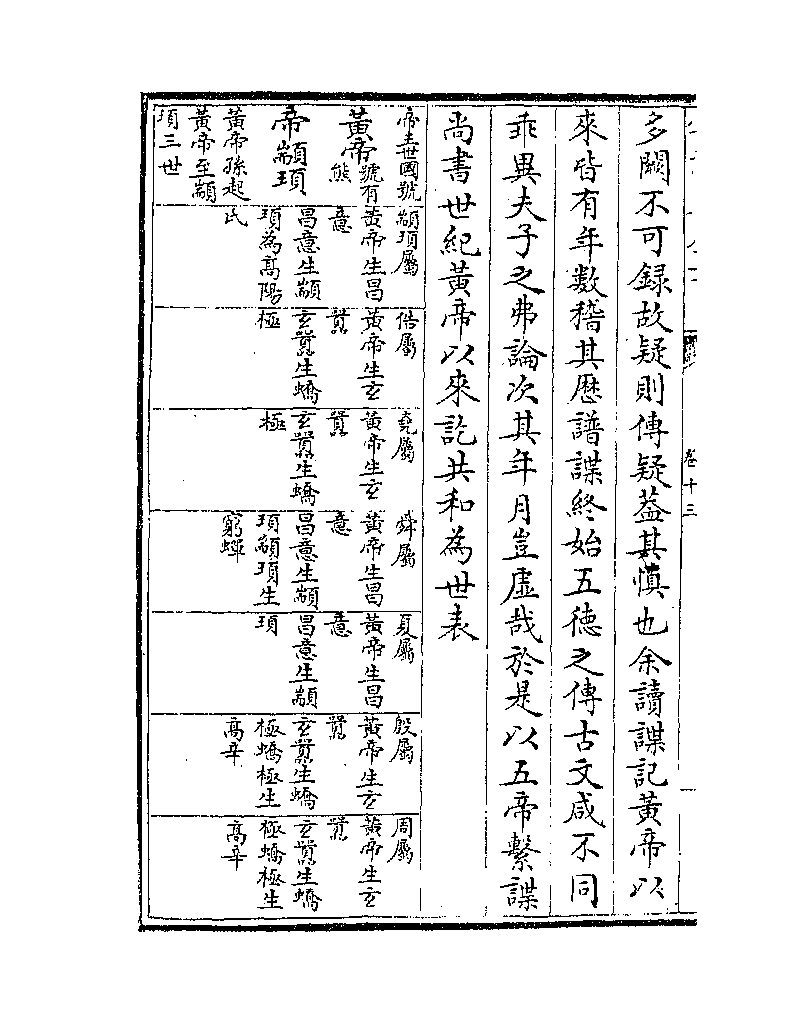 卷十三
多闕不可録故疑則傳疑葢其慎也余讀諜記黃帝以
來皆有年數稽其厯譜諜終始五徳之傳古文咸不同
乖異夫子之弗論次其年月豈虛哉於是以五帝繫諜
尚書世紀黃帝以來訖共和為世表
帝王世國號
黃帝號有
熊
帝顓頊
黃帝孫起
黃帝至顓
頊三世
顓頊屬
黃帝生昌
意
昌意生顓
頊為高陽
氏
俈屬
黃帝生玄
囂
玄囂生蟜
極
堯屬
黃帝生玄
囂
玄囂生蟜
極
舜屬
黃帝生昌
意
昌意生顓
頊顓頊生
窮蟬
夏屬
黃帝生昌
意
昌意生顓
頊
殷屬
黃帝生玄
囂
玄囂生蟜
極蟜極生
高辛
周屬
黃帝生玄
囂
玄囂生蟜
極蟜極生
高辛